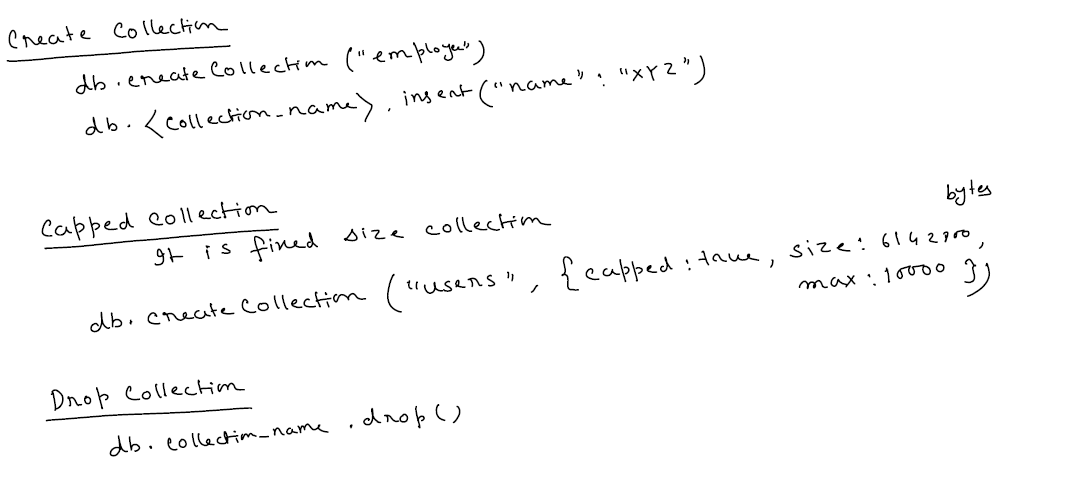 Create Collection
db.createCollection ("employee")
db.<collection_name>.insert("name" : "XYZ")
Capped Collection
It is fixed size collection
bytes
db.createCollection ("users", {capped:true, size: 6142900,
max : 10000 });
Drop Collection
db.collection_name.drop()